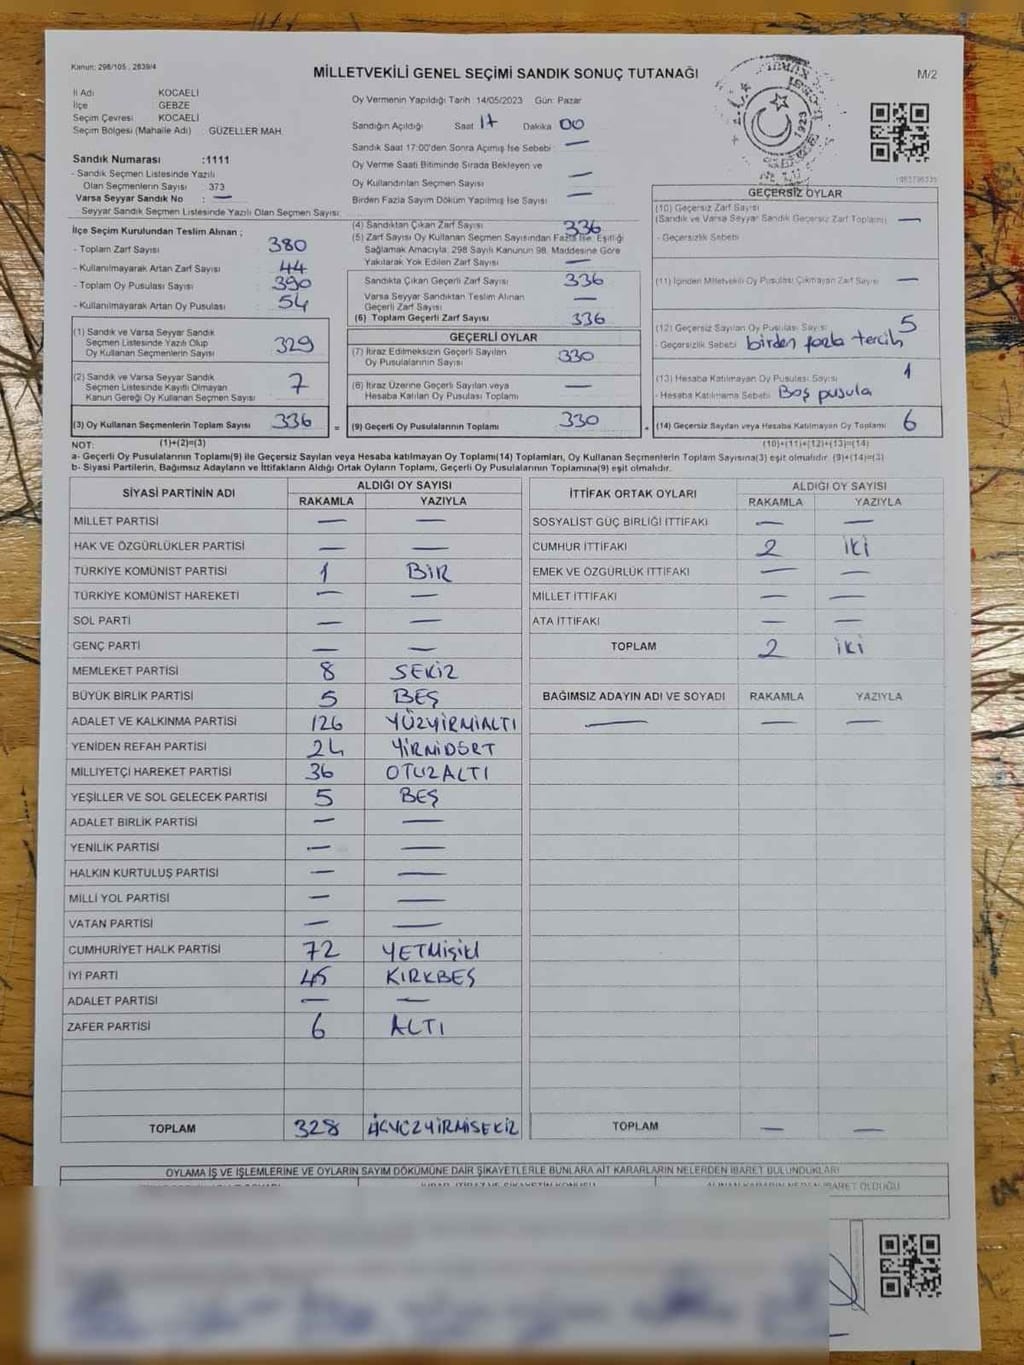 Kanun: 298/105 , 2839/4
MİLLETVEKİLİ GENEL SEÇİMİ SANDIK SONUÇ TUTANAĞI
M/2
İl Adı KOCAELİ
İlçe GEBZE
Seçim Çevresi KOCAELİ
Seçim Bölgesi (Mahalle Adı) : GÜZELLER MAH.
Sandık Numarası :1111
- Sandık Seçmen Listesinde Yazılı
Olan Seçmenlerin Sayısı : 373
Varsa Seyyar Sandık No : —
Seyyar Sandık Seçmen Listesinde Yazılı Olan Seçmen Sayısı:
İlçe Seçim Kurulundan Teslim Alınan ;
- Toplam Zarf Sayısı : 380
- Kullanılmayarak Artan Zarf Sayısı : 44
- Toplam Oy Pusulası Sayısı : 390
- Kullanılmayarak Artan Oy Pusulası : 54
(1) Sandık ve Varsa Seyyar Sandık
Seçmen Listesinde Yazılı Olup
Oy Kullanan Seçmenlerin Sayısı : 329
(2) Sandık ve Varsa Seyyar Sandık
Seçmen Listesinde Kayıtlı Olmayan
Kanun Gereği Oy Kullanan Seçmen Sayısı : 7
(3) Oy Kullanan Seçmenlerin Toplam Sayısı : 336 =
Oy Vermenin Yapıldığı Tarih : 14/05/2023 Gün: Pazar
Sandığın Açıldığı Saat 17 Dakika 00
Sandık Saat 17:00'den Sonra Açılmış İse Sebebi : —
Oy Verme Saati Bitiminde Sırada Bekleyen ve
Oy Kullandırılan Seçmen Sayısı : —
Birden Fazla Sayım Döküm Yapılmış İse Sayısı : —
(4) Sandıktan Çıkan Zarf Sayısı : 336
(5) Zarf Sayısı Oy Kullanan Seçmen Sayısından Fazla İse; Eşitliği
Sağlamak Amacıyla; 298 Sayılı Kanunun 98. Maddesine Göre
Yakılarak Yok Edilen Zarf Sayısı : —
Sandıkta Çıkan Geçerli Zarf Sayısı : 336
Varsa Seyyar Sandıktan Teslim Alınan
Geçerli Zarf Sayısı : —
(6) Toplam Geçerli Zarf Sayısı : 336
GEÇERLİ OYLAR
(7) İtiraz Edilmeksizin Geçerli Sayılan
Oy Pusulalarının Sayısı : 330
(8) İtiraz Üzerine Geçerli Sayılan veya
Hesaba Katılan Oy Pusulası Toplamı : —
(9) Geçerli Oy Pusulalarının Toplamı : 330 +
1923
GEÇERSİZ OYLAR
(10) Geçersiz Zarf Sayısı
(Sandık ve Varsa Seyyar Sandık Geçersiz Zarf Toplamı) : —
- Geçersizlik Sebebi :
(11) İçinden Milletvekili Oy Pusulası Çıkmayan Zarf Sayısı : —
(12) Geçersiz Sayılan Oy Pusulası Sayısı : 5
- Geçersizlik Sebebi : birden fazla tercih
(13) Hesaba Katılmayan Oy Pusulası Sayısı : 1
- Hesaba Katılmama Sebebi : Boş pusula
(14) Geçersiz Sayılan veya Hesaba Katılmayan Oy Toplamı : 6
NOT: (1)+(2)=(3) (10)+(11)+(12)+(13)=(14)
a- Geçerli Oy Pusulalarının Toplamı(9) ile Geçersiz Sayılan veya Hesaba katılmayan Oy Toplamı(14) Toplamları, Oy Kullanan Seçmenlerin Toplam Sayısına(3) eşit olmalıdır. (9)+(14)=(3)
b- Siyasi Partilerin, Bağımsız Adayların ve İttifakların Aldığı Ortak Oyların Toplamı, Geçerli Oy Pusulalarının Toplamına(9) eşit olmalıdır.
SİYASİ PARTİNİN ADI ALDIĞI OY SAYISI
RAKAMLA YAZIYLA
MİLLET PARTİSİ — —
HAK VE ÖZGÜRLÜKLER PARTİSİ — —
TÜRKİYE KOMÜNİST PARTİSİ 1 BİR
TÜRKİYE KOMÜNİST HAREKETİ — —
SOL PARTİ — —
GENÇ PARTİ — —
MEMLEKET PARTİSİ 8 SEKİZ
BÜYÜK BİRLİK PARTİSİ 5 BEŞ
ADALET VE KALKINMA PARTİSİ 126 YÜZYİRMİALTI
YENİDEN REFAH PARTİSİ 24 YİRMİDÖRT
MİLLİYETÇİ HAREKET PARTİSİ 36 OTUZALTI
YEŞİLLER VE SOL GELECEK PARTİSİ 5 BEŞ
ADALET BİRLİK PARTİSİ — —
YENİLİK PARTİSİ — —
HALKIN KURTULUŞ PARTİSİ — —
MİLLİ YOL PARTİSİ — —
VATAN PARTİSİ — —
CUMHURİYET HALK PARTİSİ 72 YETMİŞİKİ
İYİ PARTİ 45 KIRKBEŞ
ADALET PARTİSİ — —
ZAFER PARTİSİ 6 ALTI
TOPLAM 328 ÜÇYÜZYİRMİSEKİZ
İTTİFAK ORTAK OYLARI ALDIĞI OY SAYISI
RAKAMLA YAZIYLA
SOSYALİST GÜÇ BİRLİĞİ İTTİFAKI — —
CUMHUR İTTİFAKI 2 İKİ
EMEK VE ÖZGÜRLÜK İTTİFAKI — —
MİLLET İTTİFAKI — —
ATA İTTİFAKI — —
TOPLAM 2 İKİ
BAĞIMSIZ ADAYIN ADI VE SOYADI RAKAMLA YAZIYLA
— — —
TOPLAM — —
OYLAMA İŞ VE İŞLEMLERİNE VE OYLARIN SAYIM DÖKÜMÜNE DAİR ŞİKAYETLERLE BUNLARA AİT KARARLARIN NELERDEN İBARET BULUNDUKLARI